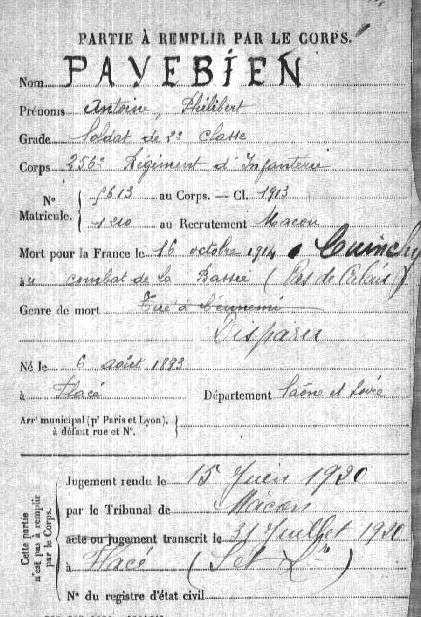 PARTIE À REMPLIR PAR LE CORPS.
Nom PAVEBIEN
Prénoms Antoine, Philibert
Grade Soldat de 2e Classe
Corps 256e Régiment d'Infanterie
N° Matricule. { 5613 au Corps. — Cl. 1913
1210 au Recrutement Macon
Mort pour la France le 16 octobre 1914 à Cuinchy
au combat de la Bassée (Pas de Calais)
Genre de mort Tué à l'ennemi
Disparu
Né le 6 août 1893
à Flacé Département Saône et Loire
Arrt municipal (pr Paris et Lyon), à défaut rue et N°. {
Cette partie n'est pas à remplir par le Corps.
Jugement rendu le 15 Juin 1920
par le Tribunal de Mâcon
acte ou jugement transcrit le 31 Juillet 1920
à Flacé (S et Lre)
N° du registre d'état civil